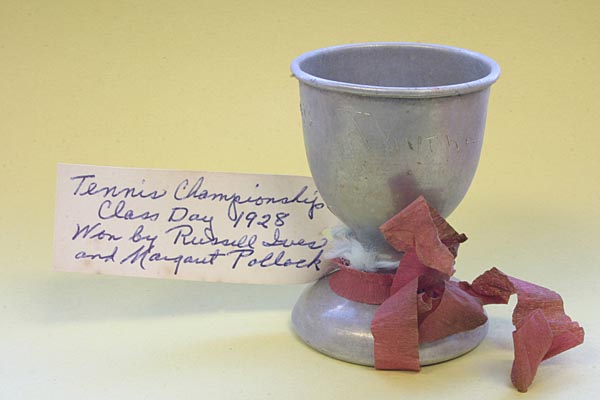 Tennis Championship
Class Day 1928
Won by Russell Ives
and Margaret Pollock